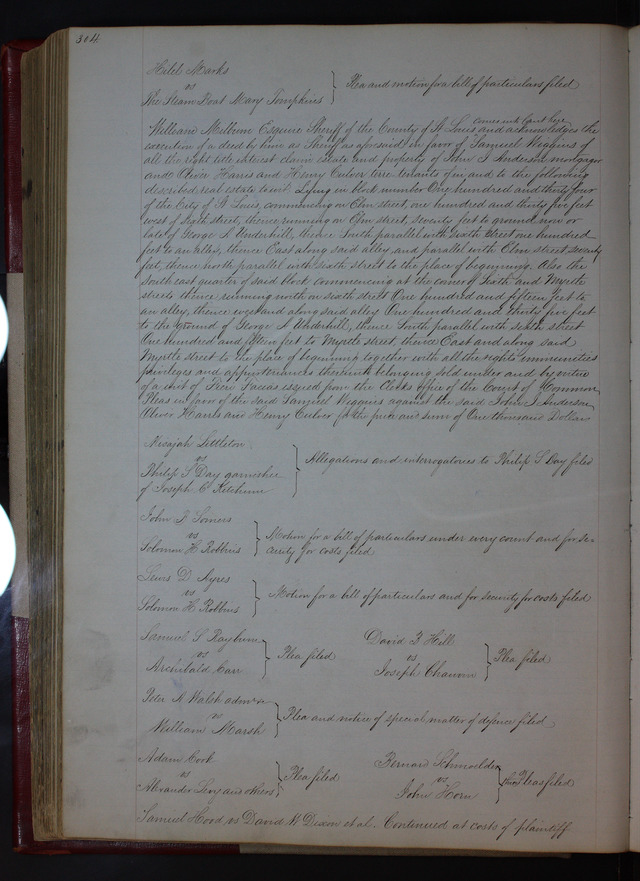 304
Hilel Marks
vs
The Steam Boat Mary Tompkins } Plea and motion for a bill of particulars filed
comes into Court here
William Milburn Esquire Sheriff of the County of St Louis and acknowledges the
execution of a deed by him as Sheriff as aforesaid in favor of Samuel Wiggins of
all the right title interest claim estate and property of John J Anderson mortgagor
and Oliver Harris and Henry Culver terre tenants of in and to the following
described real estate towit. Lying in block number One hundred and thirty four
of the City of St Louis, commencing on Elm street, one hundred and thirty five feet
west of Sixth street, thence running on Elm street, seventy feet to ground now or
late of George S Underhill, thence South parallel with sixth street one hundred
feet to an alley, thence East along said alley, and parallel with Elm street seventy
feet, thence north parallel with sixth street to the place of beginning. Also the
South east quarter of said block commencing at the corner of Sixth and Myrtle
streets thence running north on sixth street One hundred and fifteen feet to
an alley, thence west and along said alley One hundred and thirty five feet
to the ground of George S Underhill, thence South parallel with sixth street
One hundred and fifteen feet to Myrtle street thence East and along said
Myrtle street to the place of beginning together with all the rights immunities
privileges and appurtenances thereunto belonging sold under and by virtue
of a writ of Fieri Facias issued from the Clerks office of the Court of Common
Pleas in favor of the said Samuel Wiggins against the said John J Anderson
Oliver Harris and Henry Culver for the price and sum of One thousand Dollars
Micajah Littleton
vs
Philip S Day garnishee } Allegations and interrogatories to Philip S Day filed
of Joseph C Ketchum
John F Somers
vs } Motion for a bill of particulars under every count and for se-
Solomon H Robbins curity for costs filed
Lewis D Ayres
vs } Motion for a bill of particulars and for security for costs filed
Solomon H Robbins
Samuel S Rayburn
vs } Plea filed
Archibald Carr
David F Hill
vs } Plea filed
Joseph
Peter A Walsh admr
vs } Plea and notice of special matter of defence filed
William Marsh
Adam Cook
vs } Plea filed
Alexander Levy and others
Bernard Schmoelder
vs } Pleas filed
John Horn
Samuel Hood vs David W Dixon et al. Continued at costs of plaintiff